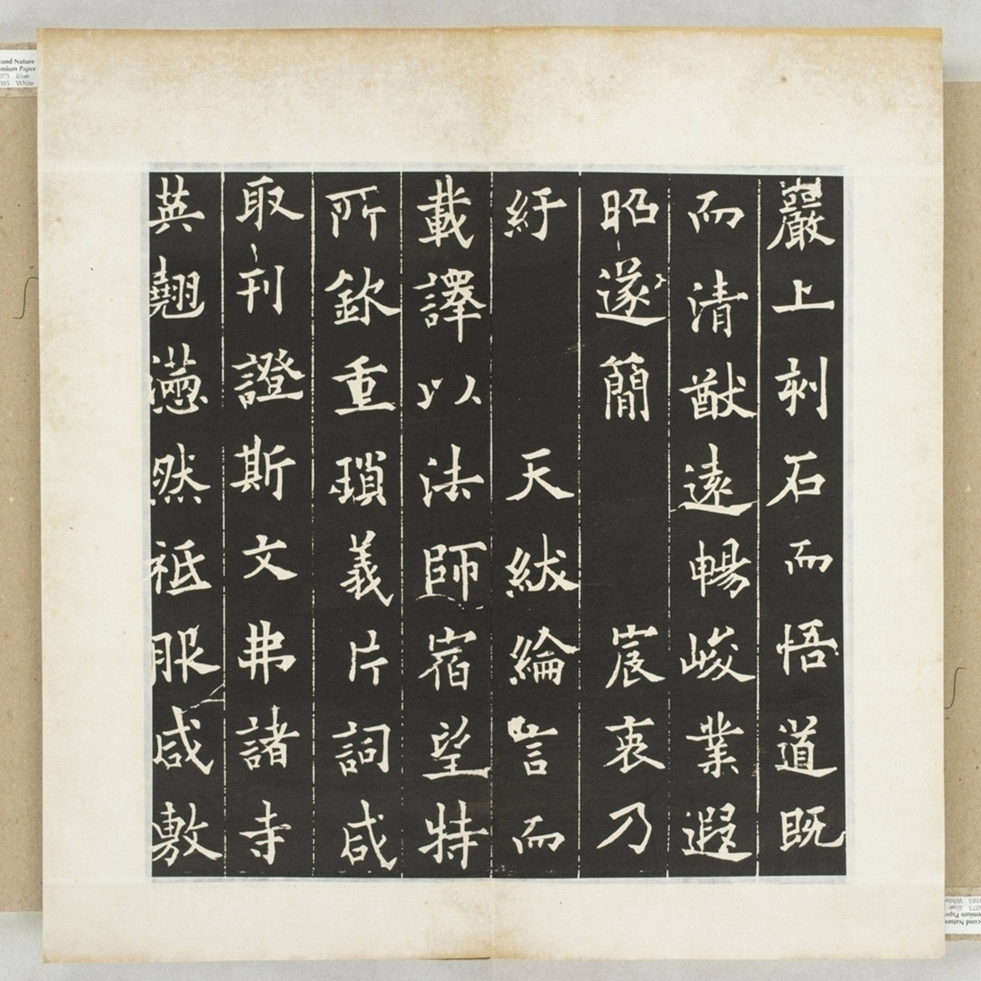 巖上剥石而悟道既
而清猷遠暢峻業遐
昭遂簡 宸衷乃
紆 天紱綸言而
載譯以法師宿望特
所欽重瑣義片詞咸
取刊證斯文弗諸寺
英翹懣然祗服咸敷
cond Nature
mium Paper
075 Blue
085 White